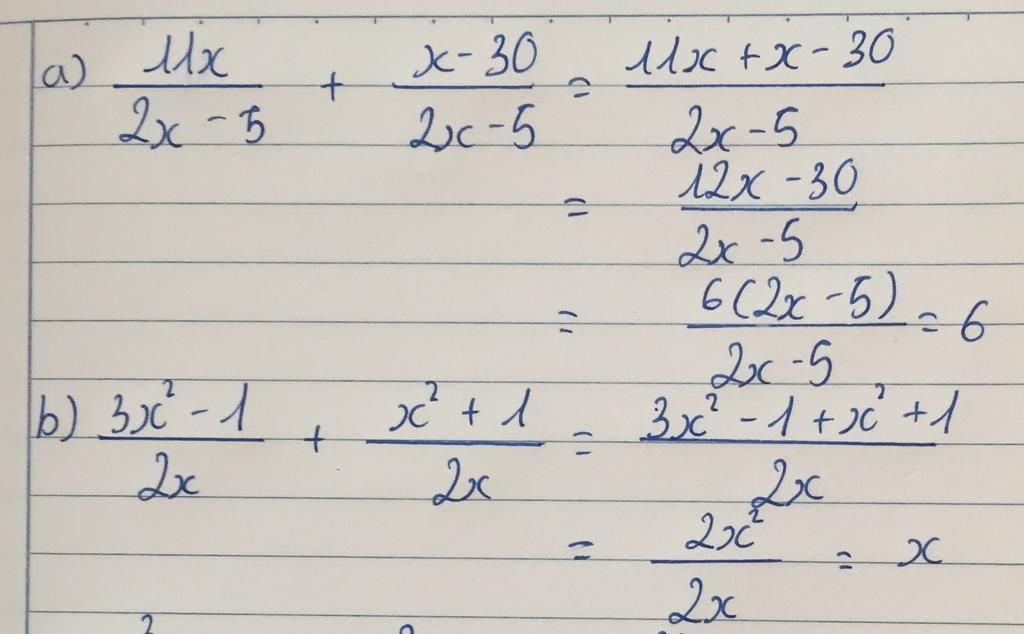 a) \frac{11x}{2x - 5} + \frac{x - 30}{2x - 5} = \frac{11x + x - 30}{2x - 5}
= \frac{12x - 30}{2x - 5}
= \frac{6(2x - 5)}{2x - 5} = 6
b) \frac{3x² - 1}{2x} + \frac{x² + 1}{2x} = \frac{3x² - 1 + x² + 1}{2x}
= \frac{2x²}{2x} = x